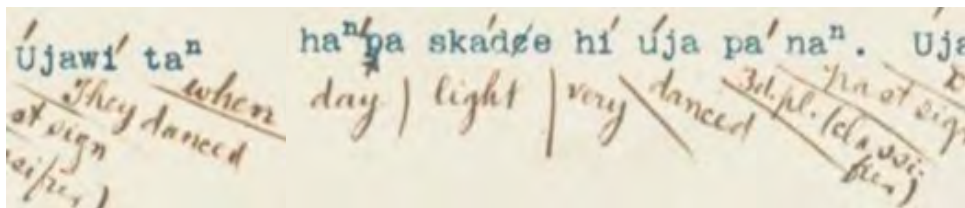 Újawí taⁿ haⁿ́pa skádȼe hí úja pá naⁿ. Uja
They danced when day light very danced 3d. pl. (classifier) past sign
st sign